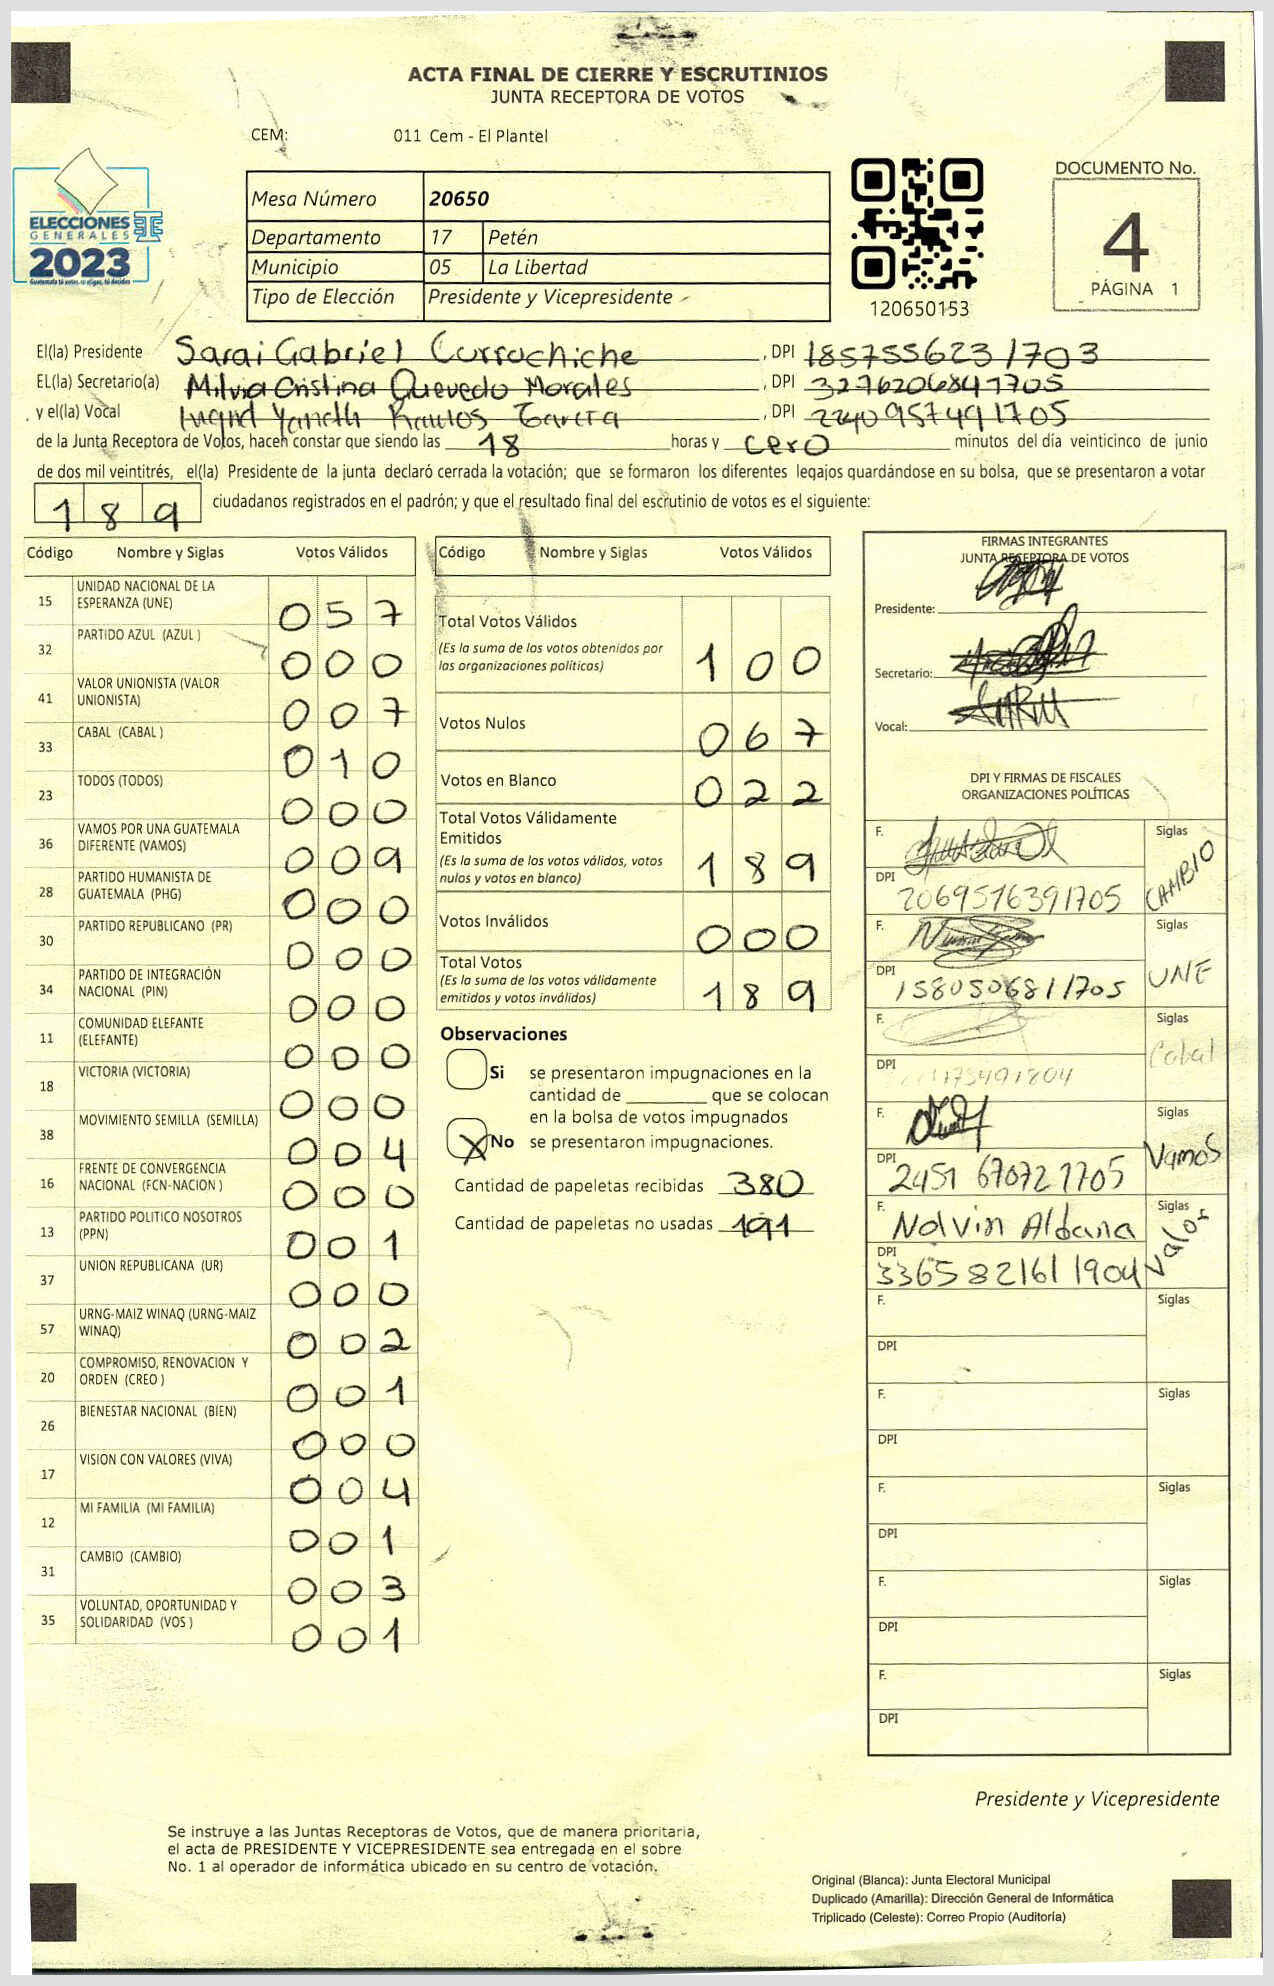 ACTA FINAL DE CIERRE Y ESCRUTINIOS
JUNTA RECEPTORA DE VOTOS
CEM: 011 Cem - El Plantel
ELECCIONES
GENERALES
2023
Guatemala tú votas, tú eliges, tú decides
Mesa Número 20650
Departamento 17 Petén
Municipio 05 La Libertad
Tipo de Elección Presidente y Vicepresidente
120650153
DOCUMENTO No.
4
PÁGINA 1
El(la) Presidente Sarai Gabriel Curruchiche, DPI 1857556231703
EL(la) Secretario(a) Milvia Cristina Quevedo Morales, DPI 3276206841705
y el(la) Vocal Ingrid Yaneth Ramos Garcia, DPI 2240957491705
de la Junta Receptora de Votos, hacen constar que siendo las 18 horas y cero minutos del día veinticinco de junio
de dos mil veintitrés, el(la) Presidente de la junta declaró cerrada la votación; que se formaron los diferentes legajos guardándose en su bolsa, que se presentaron a votar
189 ciudadanos registrados en el padrón; y que el resultado final del escrutinio de votos es el siguiente:
Código Nombre y Siglas Votos Válidos
15 UNIDAD NACIONAL DE LA ESPERANZA (UNE) 057
32 PARTIDO AZUL (AZUL ) 000
41 VALOR UNIONISTA (VALOR UNIONISTA) 007
33 CABAL (CABAL ) 010
23 TODOS (TODOS) 000
36 VAMOS POR UNA GUATEMALA DIFERENTE (VAMOS) 009
28 PARTIDO HUMANISTA DE GUATEMALA (PHG) 000
30 PARTIDO REPUBLICANO (PR) 000
34 PARTIDO DE INTEGRACIÓN NACIONAL (PIN) 000
11 COMUNIDAD ELEFANTE (ELEFANTE) 000
18 VICTORIA (VICTORIA) 000
38 MOVIMIENTO SEMILLA (SEMILLA) 004
16 FRENTE DE CONVERGENCIA NACIONAL (FCN-NACION ) 000
13 PARTIDO POLITICO NOSOTROS (PPN) 001
37 UNION REPUBLICANA (UR) 000
57 URNG-MAIZ WINAQ (URNG-MAIZ WINAQ) 002
20 COMPROMISO, RENOVACION Y ORDEN (CREO ) 001
26 BIENESTAR NACIONAL (BIEN) 000
17 VISION CON VALORES (VIVA) 004
12 MI FAMILIA (MI FAMILIA) 001
31 CAMBIO (CAMBIO) 003
35 VOLUNTAD, OPORTUNIDAD Y SOLIDARIDAD (VOS ) 001
Código Nombre y Siglas Votos Válidos
Total Votos Válidos 100
(Es la suma de los votos obtenidos por
las organizaciones políticas)
Votos Nulos 067
Votos en Blanco 022
Total Votos Válidamente
Emitidos 189
(Es la suma de los votos válidos, votos
nulos y votos en blanco)
Votos Inválidos 000
Total Votos 189
(Es la suma de los votos válidamente
emitidos y votos inválidos)
Observaciones
Si se presentaron impugnaciones en la
cantidad de ________ que se colocan
en la bolsa de votos impugnados
X No se presentaron impugnaciones.
Cantidad de papeletas recibidas 380
Cantidad de papeletas no usadas 191
FIRMAS INTEGRANTES
JUNTA RECEPTORA DE VOTOS
Presidente:
Secretario:
Vocal:
DPI Y FIRMAS DE FISCALES
ORGANIZACIONES POLÍTICAS
F. Siglas CAMBIO
DPI 2069516391705
F. Siglas UNE
DPI 1580506811705
F. Siglas Cabal
DPI
F. Siglas Vamos
DPI 2451 670721705
F. Nolvin Aldana Siglas Valor
DPI 3365821611904
F. Siglas
DPI
F. Siglas
DPI
F. Siglas
DPI
F. Siglas
DPI
F. Siglas
DPI
Presidente y Vicepresidente
Se instruye a las Juntas Receptoras de Votos, que de manera prioritaria,
el acta de PRESIDENTE Y VICEPRESIDENTE sea entregada en el sobre
No. 1 al operador de informática ubicado en su centro de votación.
Original (Blanca): Junta Electoral Municipal
Duplicado (Amarilla): Dirección General de Informática
Triplicado (Celeste): Correo Propio (Auditoría)